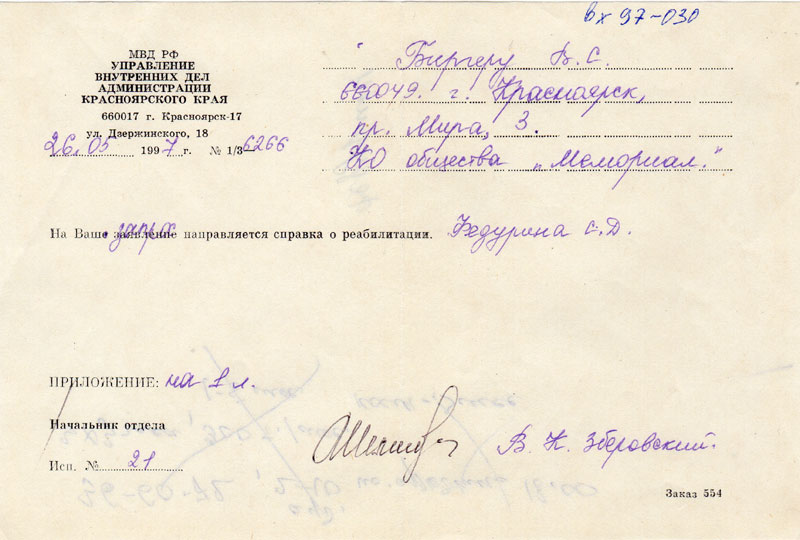 вх 97-030
МВД РФ
УПРАВЛЕНИЕ
ВНУТРЕННИХ ДЕЛ
АДМИНИСТРАЦИИ
КРАСНОЯРСКОГО КРАЯ
660017 г. Красноярск-17
ул. Дзержинского, 18
26.05 1997 г. № 1/3-6266
Биргеру В.С.
660049. г. Красноярск,
пр. Мира, 3.
КО общества „Мемориал."
На Ваше заявление запрос направляется справка о реабилитации. Федурина С.Д.
ПРИЛОЖЕНИЕ: на 1 л.
Начальник отдела
В. К. Зберовский.
Исп. № 21
Заказ 554